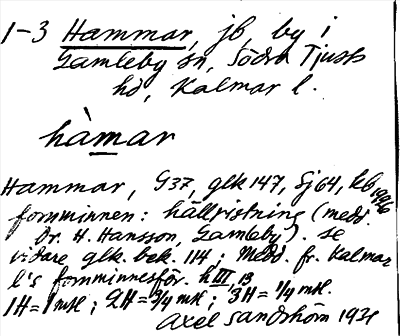 1-3 Hammar, jb, by i
Gamleby sn, Södra Tjusts
hd, Kalmar l.
hàmar
Hammar, G37, glk 147, Sj 64, kb 1996
fornminnen: hällristning (medd.
Dr. H. Hansson, Gamleby). se
vidare glk. bek. 114; Medd. fr. Kalmar
l:s fornminnesför. h III, 13
1H=1 mtl; 2H=3/4 mtl; 3H=1/4 mtl.
Axel Sandström 1931